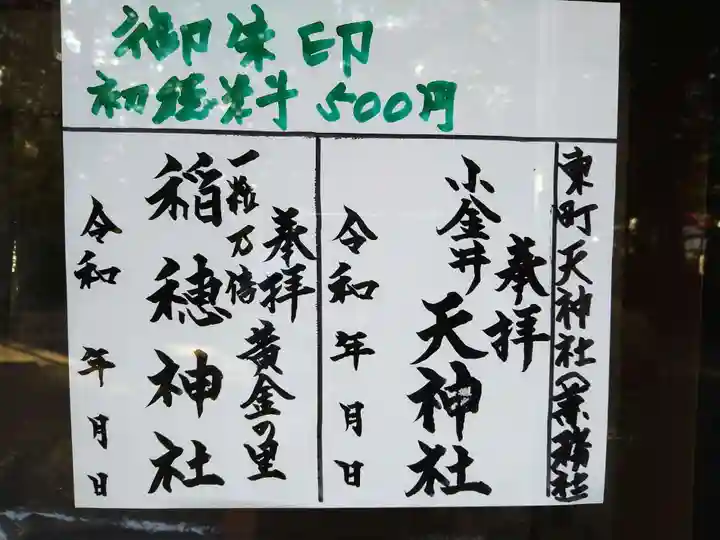 御朱印
初穂料 500円
東町天神社(業務社)
奉拝
小金井天神社
令和 年 月 日
奉拝
黄金の里
一粒万倍
稲穂神社
令和 年 月 日